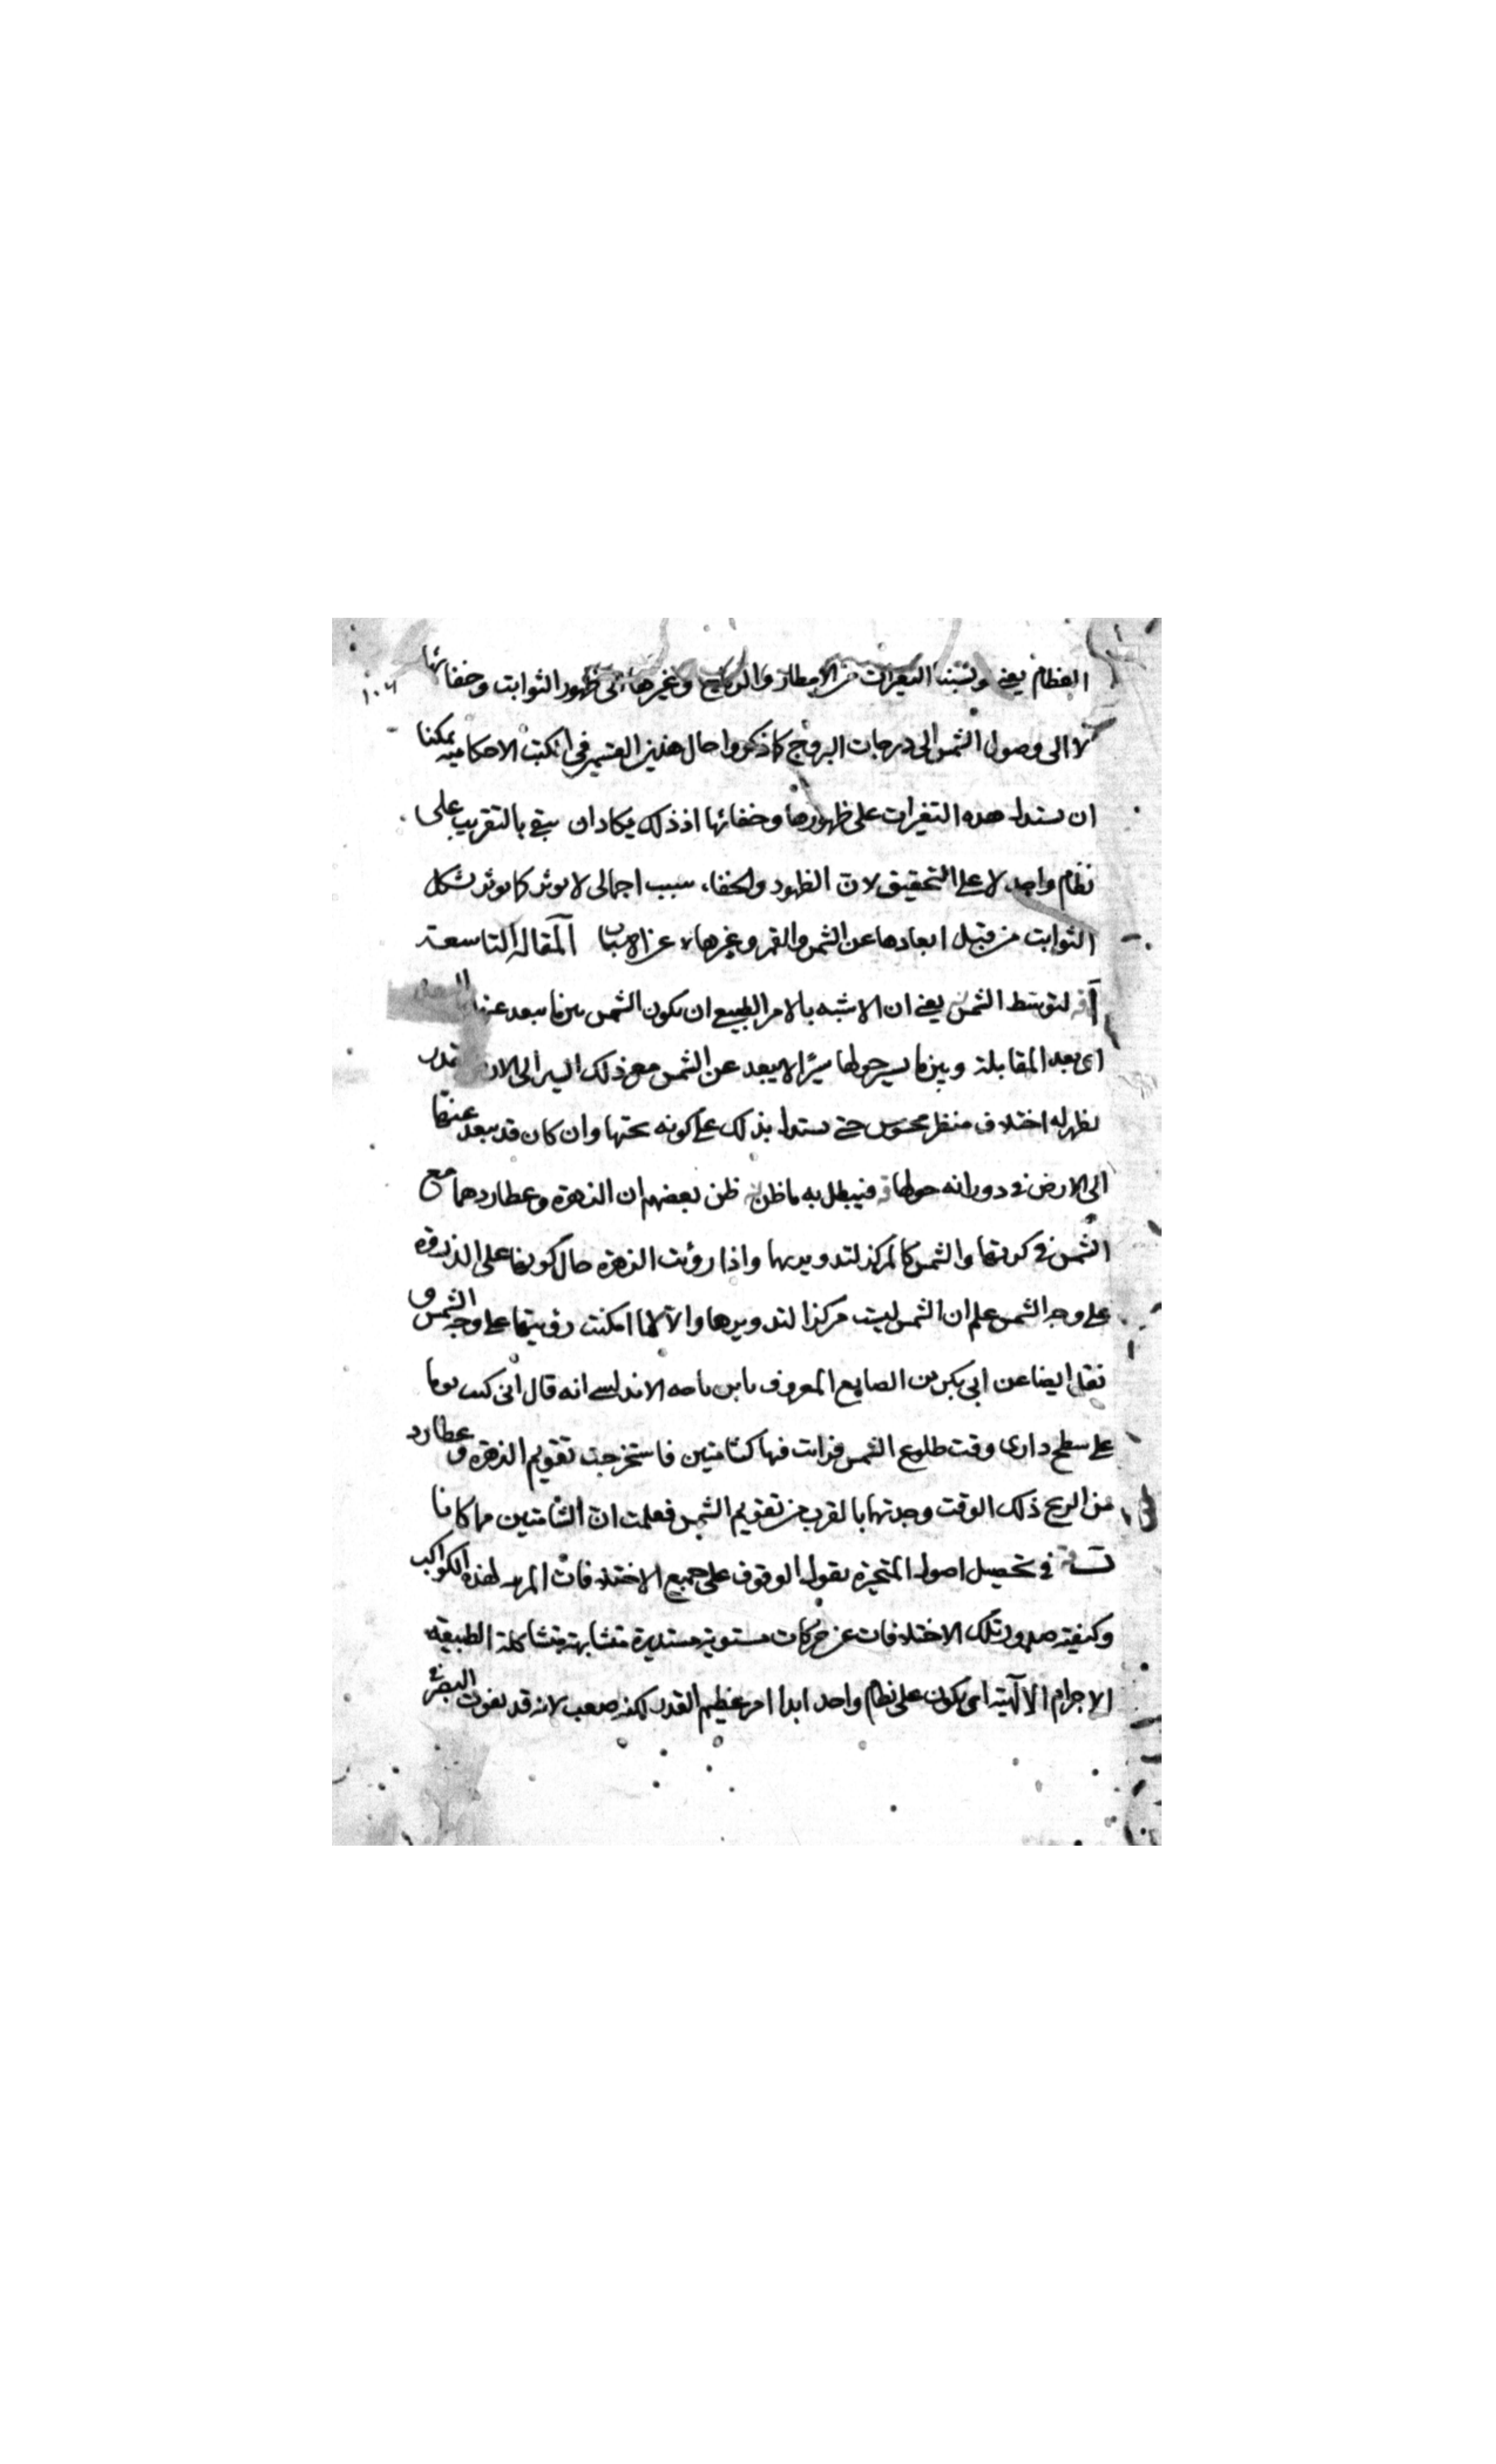 العظام يعنى ونسبنا التغيرات من الامطار والرياح وغيرها الى ظهور الثوابت وخفائها
١٠٦
لا الى وصول الشمس الى درجات البروج كما ذكروا حال هذين القسمين فى الكتب الاحكامية يمكننا
ان يستدل هذه التغيرات على ظهورها وخفائها اذ ذلك يكاد ان يبقى بالتقريب على
نظام واحد لا على التحقيق لان الظهور والخفاء سبب اجمالى لا يوثر كما يوثر تشكل
الثوابت من قبل ابعادها عن الشمس والقمر وغيرها المقالة التاسعة
لتوسط الشمس يعنى ان الاشبه بالامر الطبيعى ان يكون الشمس بين ما يبعد عنها
اى بعد المقابلة وبين ما يسير حولها سيرًا لا يبعد عن الشمس مع ذلك السير الى الارض قدر
يظهر له اختلاف منظر محسوس حتى يستدل بذلك على كونه تحتها وان كان قد يبعد عنها
الى الارض فى دورانه حولها فيبطل به ما ظن ظن بعضهم ان الزهرة وعطارد هما مع
الشمس فى كرتها والشمس كالمركز لتدويريهما واذا رؤيت الزهرة حال كونها على الذروة
على وجه الشمس علم ان الشمس ليست مركزا لتدويرها والا لما امكنت رؤيتها على وجه الشمس و
نقل ايضا عن ابى بكر بن الصايغ المعروف بابن باجه الاندلسى انه قال انى كنت يوما
على سطح دارى وقت طلوع الشمس فرايت فيها كشامتين فاستخرجت تقويم الزهرة و عطارد
من الزيج ذلك الوقت وجدتهما بالقرب من تقويم الشمس فعلمت ان الشامتين هما كانا
فى تحصيل اصول المتحيزة يقول الوقوف على جميع الاختلافات المرئية لهذه الكواكب
وكيفية صدور تلك الاختلافات عن حركات مستوية مستديرة متشابهة متشاكلة الطبيعة
الاجرام الالهية اى يكون على نظام واحد ابدا امر عظيم القدر لكنه صعب لانه قد يفوت البصر فى